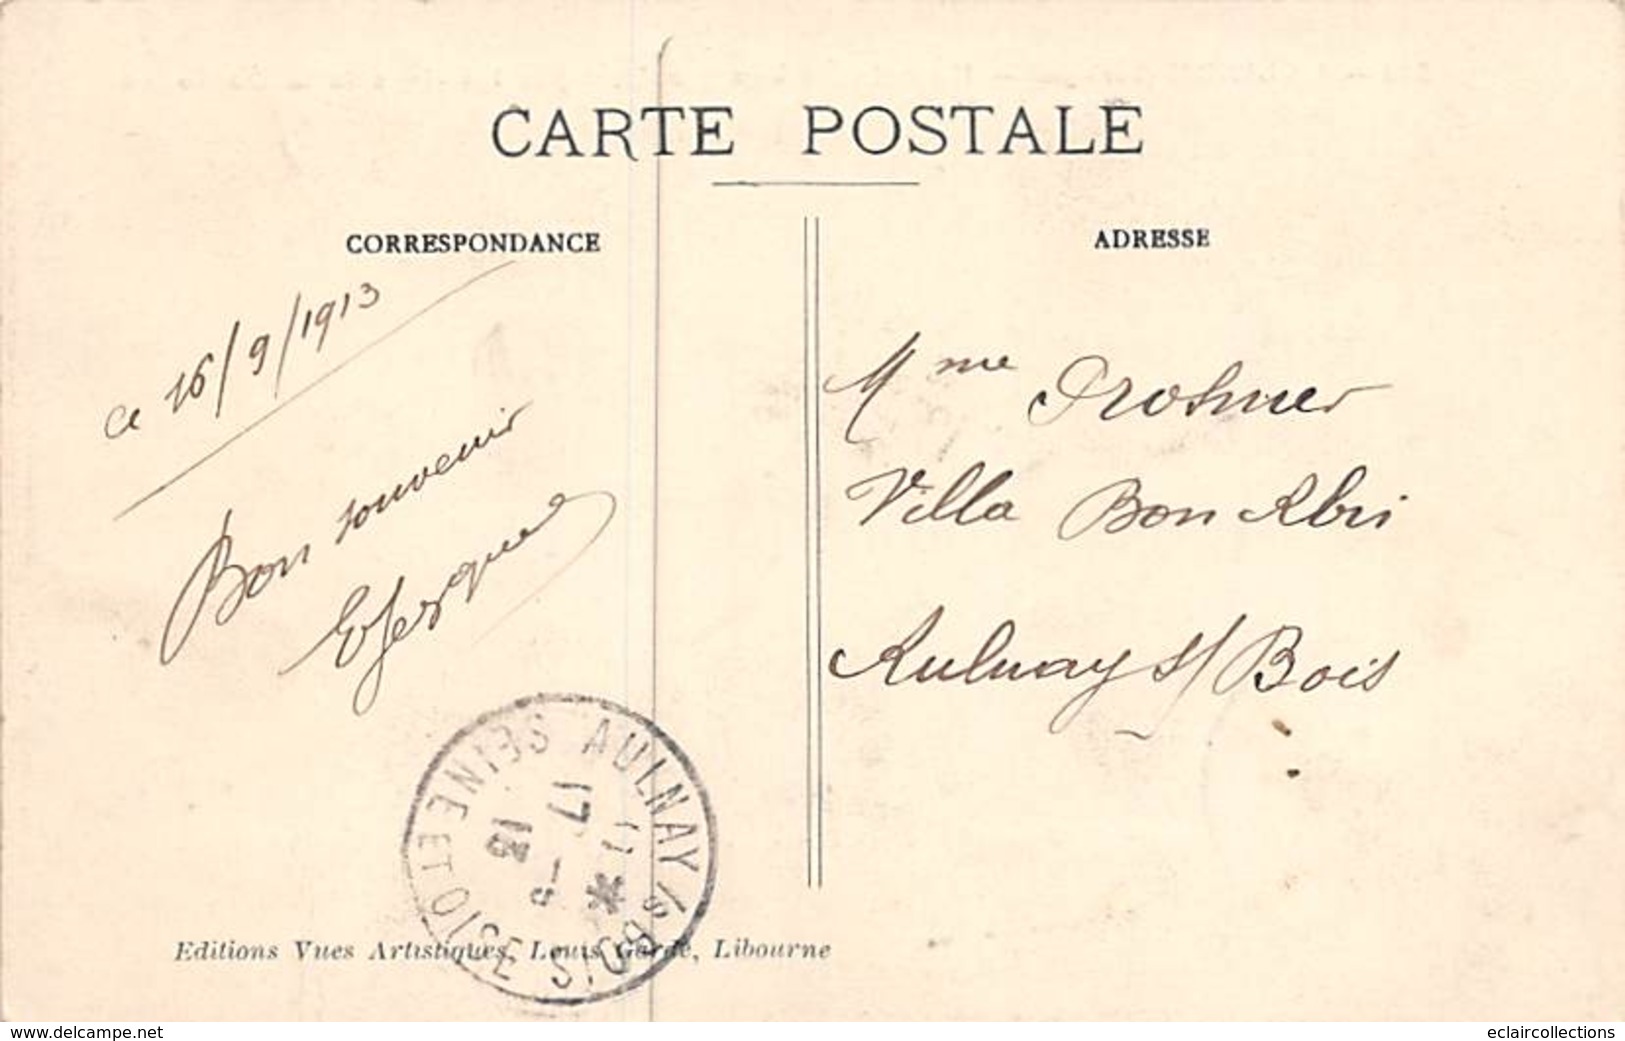 CARTE POSTALE
CORRESPONDANCE
ADRESSE
ce 16/9/1913
Bon souvenir
Mme
Villa Bon Abri
Aulnay s/ Bois
AULNAY S/S BOIS
SEINE ET OISE
17 - 9
13
Editions Vues Artistiques, Louis Garde, Libourne
www.delcampe.net
eclaircollections